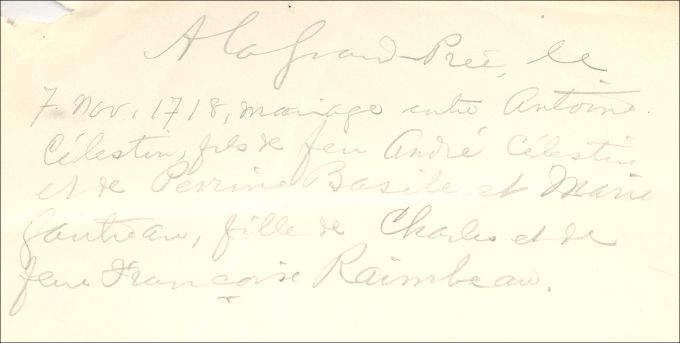 A la grand-Prée, le
7. Nov. 1718, mariage entre Antoine
Célestin, fils de feu André Célestin
et de Perrine Basile et Marie
Gautreau, fille de Charles et de
feue Françoise Raimbeau.